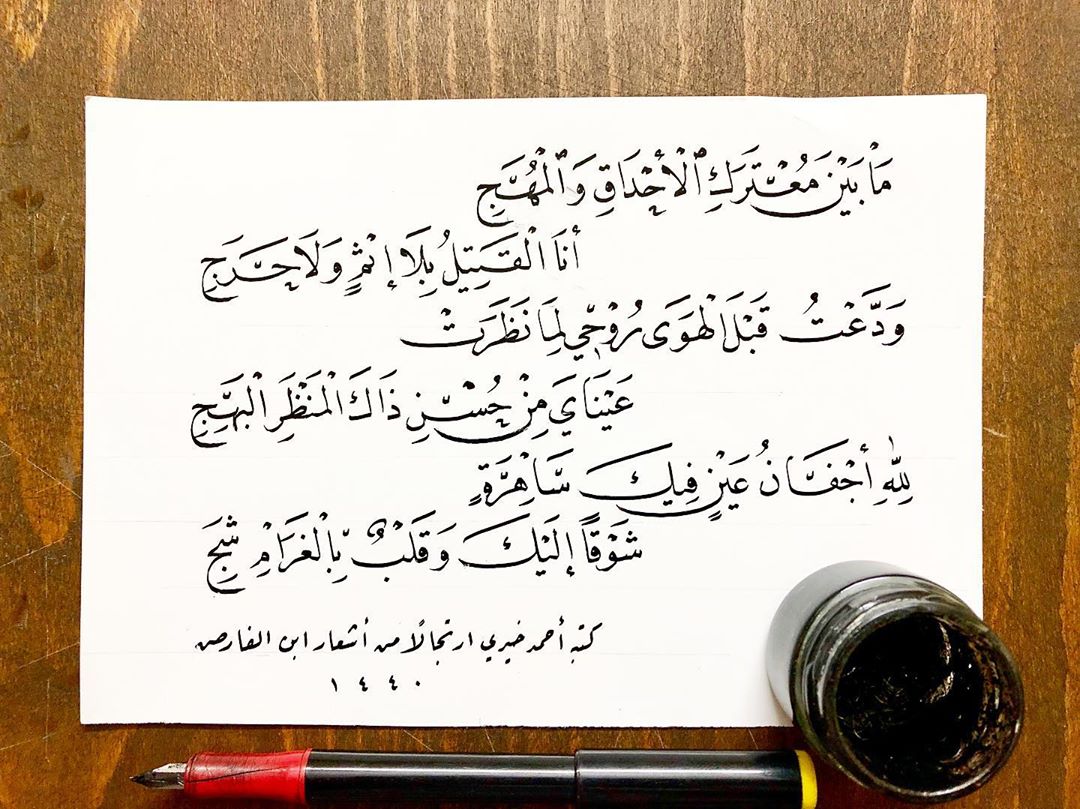 مَا بَيْنَ مُعْتَرَكِ ٱلْأَحْدَاقِ وَٱلْمُهَجِ
أَنَا الْقَتِيلُ بِلَا إِثْمٍ وَلَا حَرَجِ
وَدَّعْتُ قَبْلَ الْهَوَى رُوْحِي لِمَا نَظَرَتْ
عَيْنَايَ مِنْ حُسْنِ ذَاكَ الْمَنْظَرِ الْبَهِجِ
لِلّٰهِ أَجْفَانُ عَيْنٍ فِيكَ سَاهِرَةٍ
شَوْقًا إِلَيْكَ وَقَلْبٌ بِالْغَرَامِ شَجِ
كتبه أحمد خيري ارتجالًا من أشعار ابن الفارض
١٤٤٠